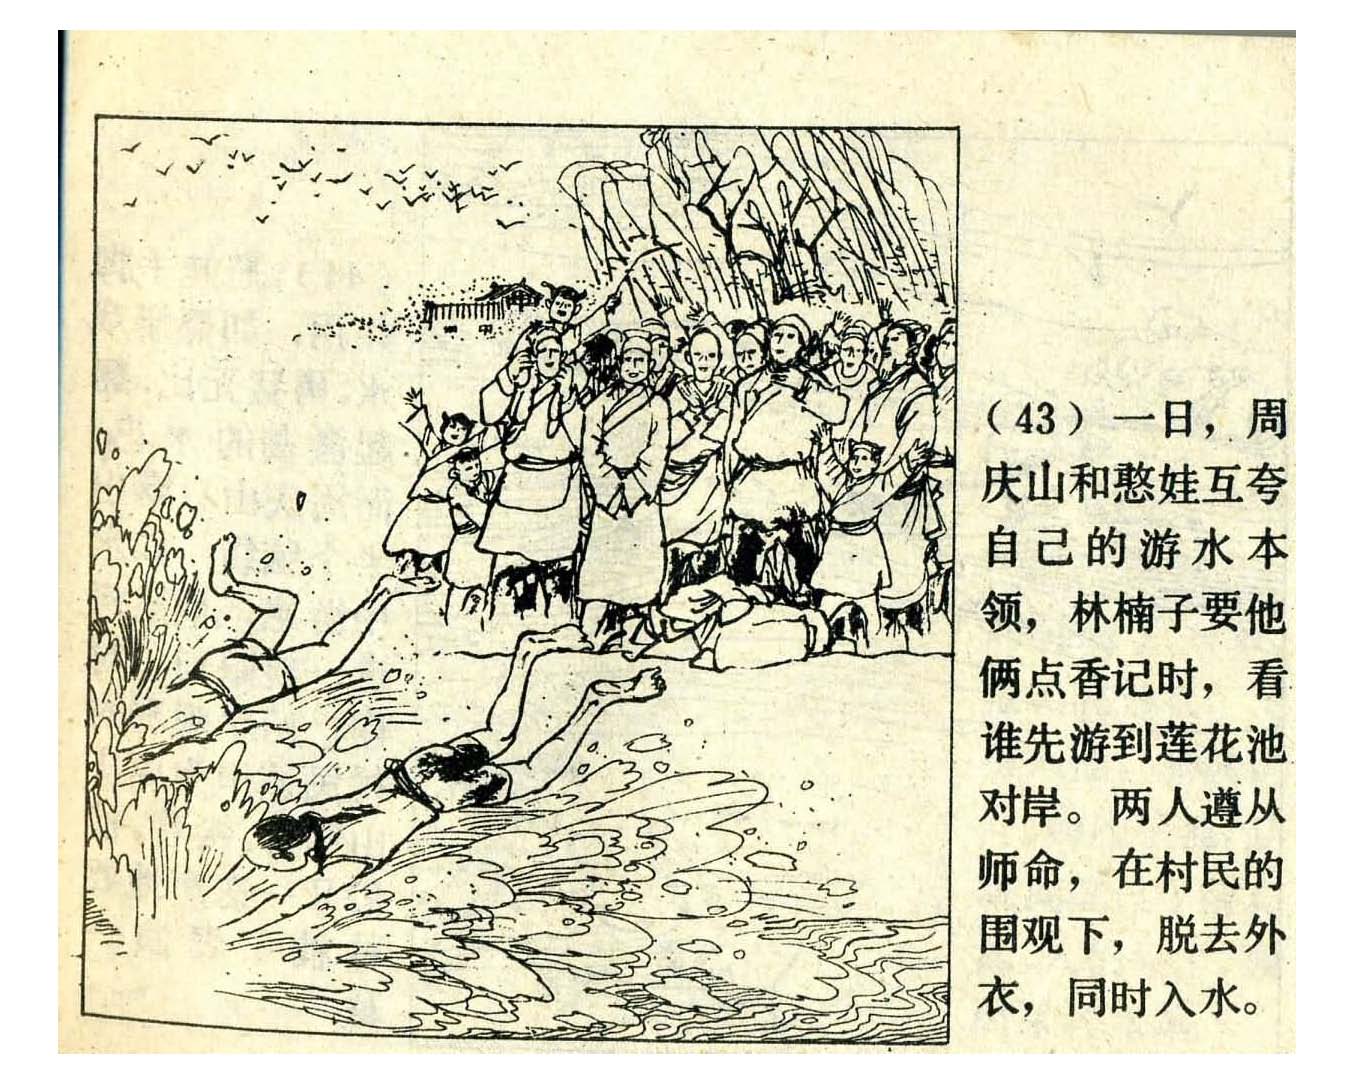 （43）一日，周
庆山和憨娃互夸
自己的游水本
领，林楠子要他
俩点香记时，看
谁先游到莲花池
对岸。两人遵从
师命，在村民的
围观下，脱去外
衣，同时入水。